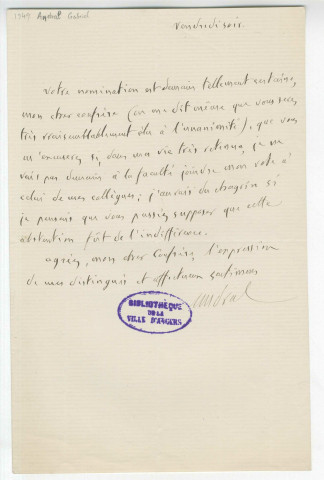 1949 Andral Gabriel
vendredi soir
votre nomination est demain tellement certaine,
mon cher confrère (on me dit même que vous serez
très vraisemblablement élu à l'unanimité), que vous
m'excuserez si, dans ma vie très retirée, je ne
vais pas demain à la faculté joindre mon vote à
celui de mes collègues ; j'aurais du chagrin si
je pensais que vous puissiez supposer que cette
abstention fût de l'indifférence.
agréez, mon cher confrère, l'expression
de mes distingués et affectueux sentimens
andral
BIBLIOTHÈQUE
DE LA
VILLE D'ANGERS